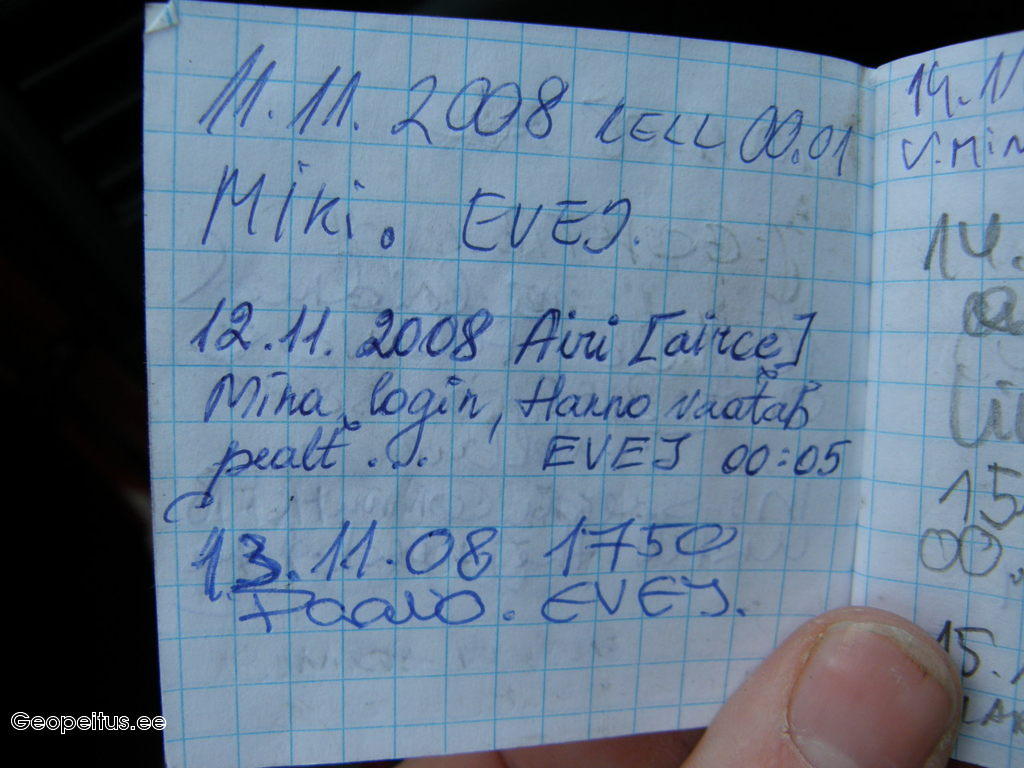 11.11.2008 KELL 00.01
Miki. EVEJ.
12.11.2008 Airi [airce]
Mina login, Hanno vaatab
pealt... EVEJ 00:05
13.11.08 1750
Paavo. EVEJ.
14.11
V.MIN
14.
15
00.
15.
Geopeitus.ee